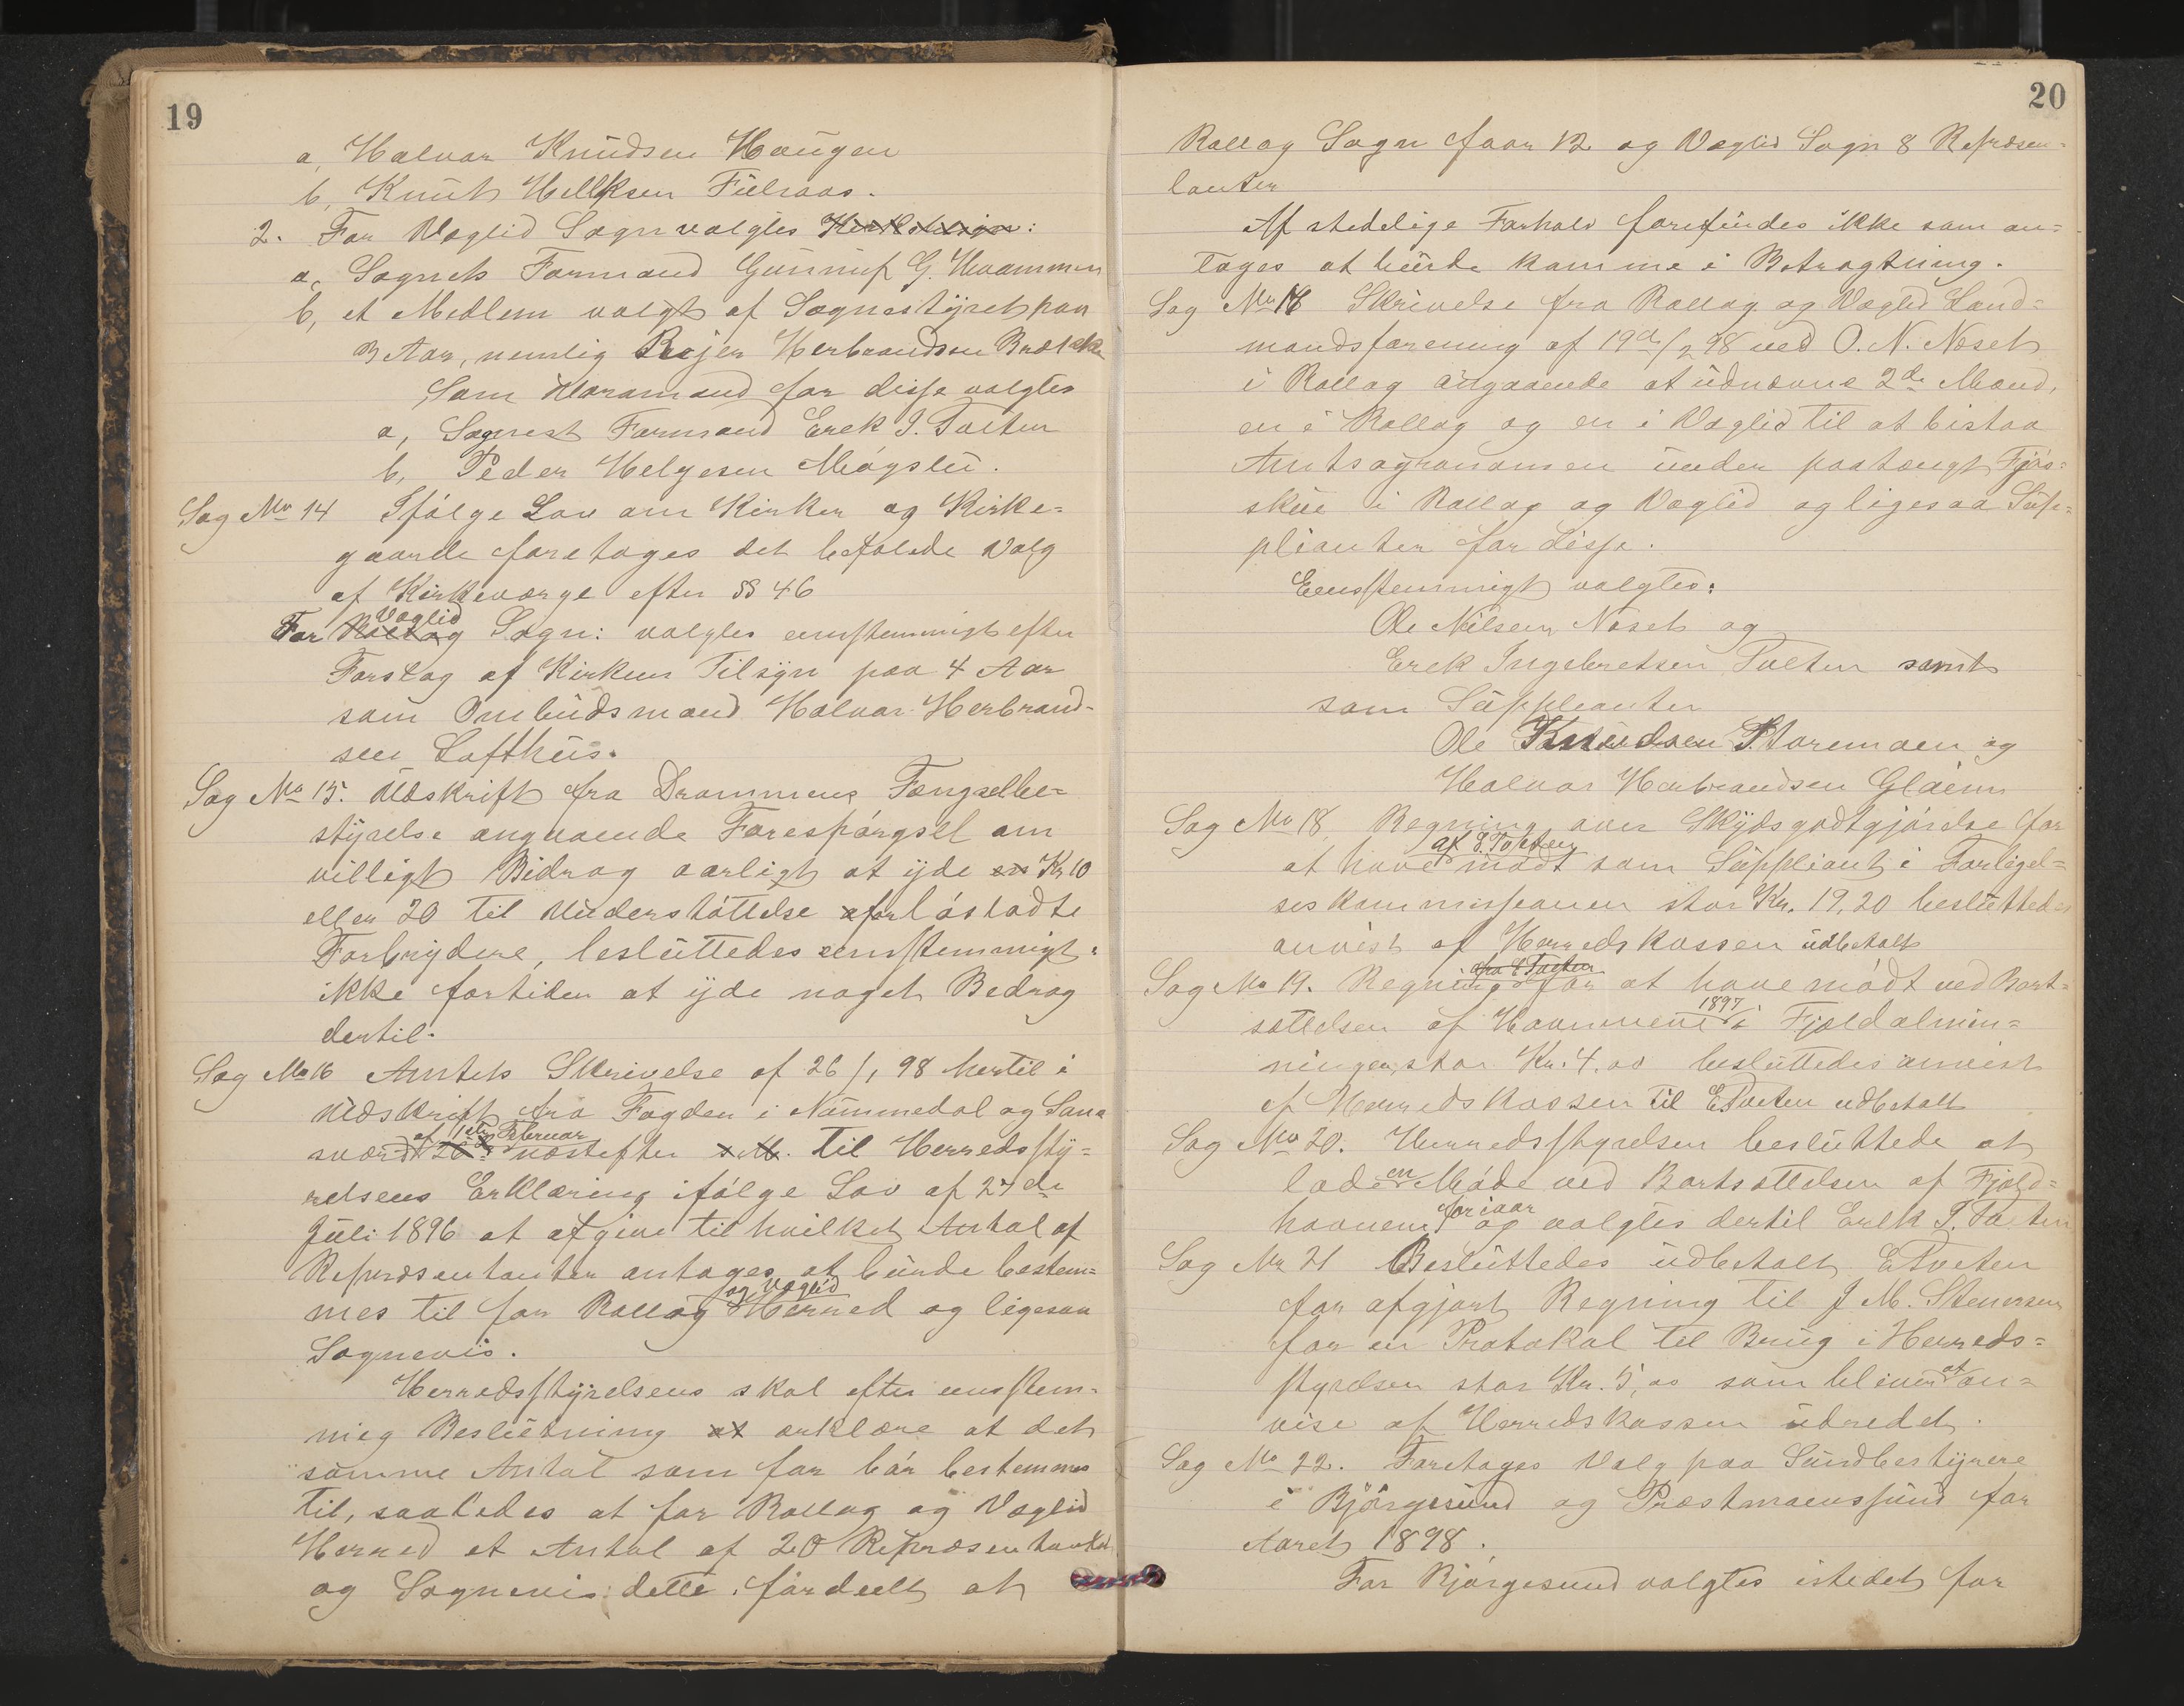 19
a, Halvar Knudsen Haugen
b, Knut Helliksen Fulraas.
2. For Væglid Sogn valgtes :
a, Sognets Formand Gunnuf G. Hvammen
b, et Medlem valgt af Sognestyret paa
3 Aar, nemlig Rejer Herbrandsen Brække
Som Varamænd for disse valgtes
a, Sognest Formand Erek I. Tveten
b, Peder Helgesen Møgslu.
Sag No 14 Ifølge Lov om Kirker og Kirke=
gaarde foretages det befalede Valg
af Kirkeværge efter §§ 46
For Væglid Sogn: valgtes eenstemmigt efter
Forslag af Kirkens Tilsyn paa 4 Aar
som Ombudsmand Halvar Herbrand-
sen Lofthus.
Sag No 15. Udskrift fra Drammens Fængselbe=
styrelse angaaende Forespørgsel om
villigt Bidrag aarligt at yde Kr 10
eller 20 til Understøttelse for løsladte
Forbrydere, besluttedes eenstemmigt:
ikke fortiden at yde noget Bedrag
dertil.
Sag No 16 Amtets Skrivelse af 26/1 98 hertil i
Udskrift fra Fogden i Nummedal og Sand
svær af 1ste Februar næstefter til Herredssty=
relsens Erklæring ifølge Lov af 27de
Juli 1896 at afgive til hvilket Antal af
Repræsentanter antages at burde bestem=
mes til for Rollag og Væglid Herred og ligesaa
Sognevis.
Herredsstyrelsens skal efter eenstem-
mig Beslutning erklære at det
samme Antal som før bør bestemmes
til, saaledes at for Rollag og Væglid
Herred et Antal af 20 Repræsentanter
og Sognevis dette fordeelt at
20
Rollag Sogn faar 12 og Væglid Sogn 8 Repræsen=
tanter
Af stedelige Forhold forefindes ikke som an=
tages at burde komme i Betragtning.
Sag No 17 Skrivelse fra Rollag og Væglid Land=
mandsforening af 19de/2 98 ved O. N. Næset
i Rollag angaaende at udnævne 2de Mænd,
en i Rollag og en i Væglid til at bistaa
Amtsagronomen under paatængt Fjøs=
skue i Rollag og Væglid og ligesaa Sup=
plianter for disse.
Eenstemmigt valgtes:
Ole Nilsen Næset og
Erek Ingebretsen Tveten samt
som Supplianter
Ole Knudsen Storemoen og
Halvar Herbrandsen Glaim
Sag No 18. Regning over Skydsgodtgjørelse for
at have af E. Tveten mødt som Suppliant i Forligel=
seskommissionen stor Kr. 19,20 besluttedes
anvist af Herredskassen udbetalt
Sag No 19. Regning fra E Tveten for at have mødt ved Bort=
sættelsen af Havnene 1897 i Fjeldalmin=
ningen, stor Kr. 4.00 besluttedes anvist
af Herredskassen til E Tveten udbetalt
Sag No 20. Herredsstyrelsen besluttede at
lade en Møde ved Bortsættelsen af Fjeld=
havnene for iaar og valgtes dertil Erek I. Tveten
Sag No 21 Besluttedes udbetalt E Tveten
for afgjort Regning til J. M. Stenersen
for en Protokol til Brug i Herreds=
styrelsen stor Kr. 5,00 som bliver at an=
vise af Herredskassen udredet.
Sag No 22. Foretages Valg paa Sundbestyrere
i Bjørgesund og Præstmoenssund for
Aaret 1898.
For Bjørgesund valgtes istedet for